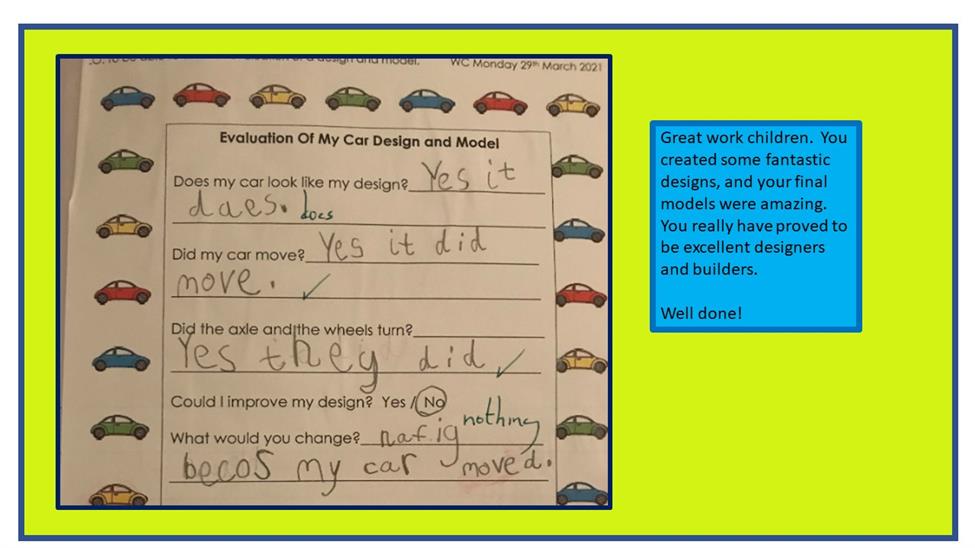 design and model. WC Monday 29th March 2021
Evaluation Of My Car Design and Model
Does my car look like my design? Yes it
daes. does
Did my car move? Yes it did
move. ✓
Did the axle and the wheels turn?
Yes they did ✓
Could I improve my design? Yes / No
nothing
What would you change? nafig
becos my car moved.
Great work children. You
created some fantastic
designs, and your final
models were amazing.
You really have proved to
be excellent designers
and builders.
Well done!